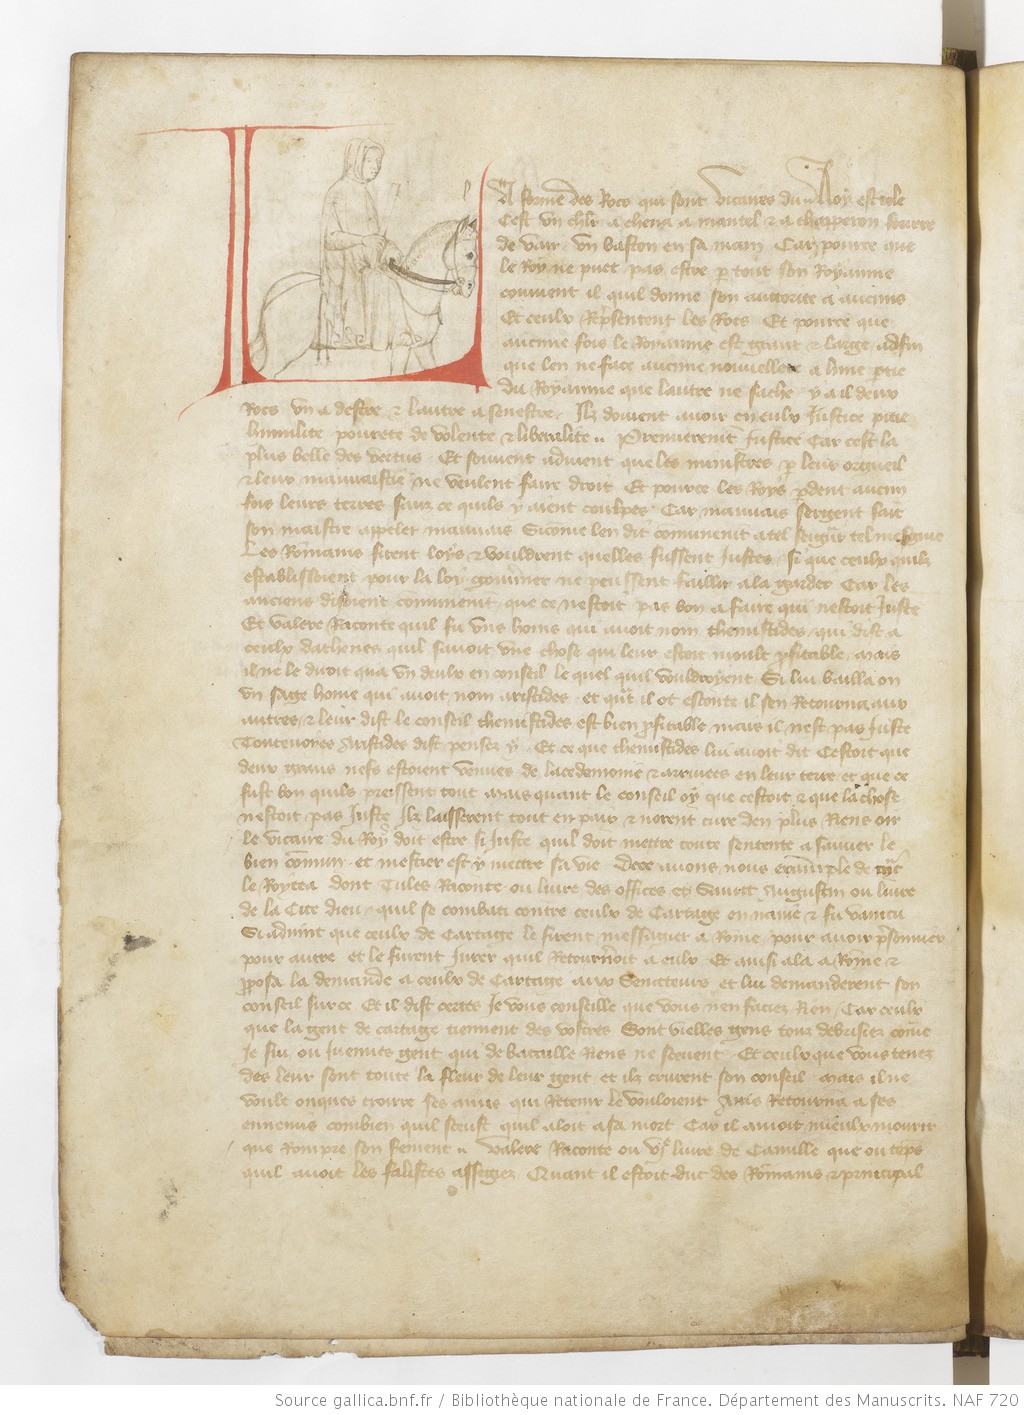 La forme des Rocs qui sont vicaires du Roy est tele
Cest vn chlr a cheual a mantel & a chapperon fourre
de vair vn baston en sa main Car pource que
le Roy ne puet pas estre p tout son Royaume
conuient il quil donne son auctorite a aucuns
Et ceulx Rpsentent les Rocs Et pource que
aucune fois le Royaume est grant & large adfin
que len ne face aucune nouuellete a lune ptie
du Royaume que lautre ne sache y a il deux
Rocs vn a destre & lautre a senestre Ilz doiuent auoir en eulx Justice pitie
humilite pourete de volente & liberalite Premierement Justice Car cest la
plus belle des vertus Et souuent aduient que les ministres p leur orgueil
& leur mauuaistie ne veulent faire droit Et pource les Roys pdent aucun
fois leurs terres sanz ce quils y aient coulpes Car mauuais sergent fait
son maistre appeler mauuais Sicome len dit communemt a tel seigur tel mesgnie
Les Romains firent loys & vouldrent quelles fussent Justes si que ceulx quilz
establissoient pour la loy gouuner ne peussent faillir a la garder Car les
anciens disoient communemt que ce nestoit pas bon a faire qui nestoit Juste
Et valere Raconte quil fu vns homs qui auoit nom themistides qui dist a
ceulx dathenes quil sauoit vne chose qui leur estoit moult pfitable mais
il ne le diroit qua vn deulx en conseil le quel quil vouldroyent Si lui bailla on
vn sage home qui auoit nom aristides et qut il ot escoute il sen Retourna aux
autres & leur dist le conseil themistides est bien pfitable mais il nest pas Juste
Toutenoyes Aristides dist pensez y Et ce que themistides lui auoit dit Cestoit que
deux grans nefs estoient venues de lacedemonie & arriuees en leur terre et que ce
fust bon quils preissent tout mais quant le conseil oy que cestoit & que la chose
nestoit pas Juste Ilz laisserent tout en paix & norent cure den plus Riens oir
le vicaire du Roy doit estre si Juste quil doit mettre toute sentente a sauuer le
bien commun et mestier est y mettre sa vie Dece auons nous example de
le Roytea dont Tules Raconte ou liure des offices et Saint Augustin ou liure
de la Cite dieu quil se combati contre ceulx de Cartage en nauie & fu vaincu
Si aduint que ceulx de Cartage le firent messagier a Rome pour auoir prsonnier
pour autre et le firent Jurer quil Retournroit a eulx Et ainsi ala a Rome &
pposa la demande a ceulx de Cartage aux Senateurs et lui demanderent son
conseil sur ce Et il dist certes Je vous conseille que vous nen faciez Rien Car ceulx
que la gent de cartage tiennent des vostres Sont vielles gens touz debrisiez come
Je sui ou Juennes gent qui de bataille Riens ne sceuent Et ceulx que vous tenez
des leur sont toute la fleur de leur gent et ilz crurent son conseil mais il ne
voult onques croirre ses amis qui Retenir le vouloient Ains Retourna a ses
ennemis combien quil sceust quil aloit a sa mort Car il amoit mieulx mourir
que Rompre son serement valere Raconte ou vje liure de Camille que ou temps
quil auoit les falistes assegiez Quant il estoit duc des Romains & principal
Source gallica.bnf.fr / Bibliothèque nationale de France. Département des Manuscrits. NAF 720